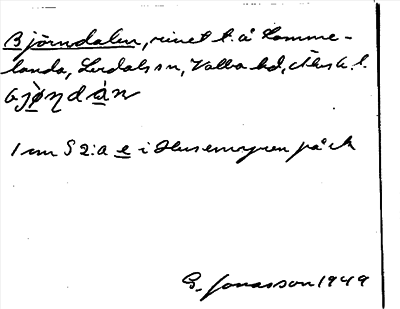 Björndalen, rivet t. å Lomme-
landa, Lurdals sn, Valbo hd, Älvsb. l.
bjö̀ɳdàn
1 cm S 2:a e i Husemyren på ek
G. Jonasson 1949